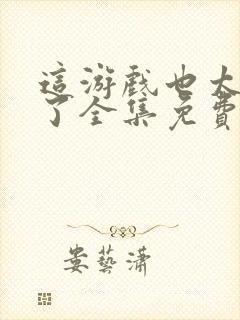 這游戲也太
了全集免費
娄藝潇